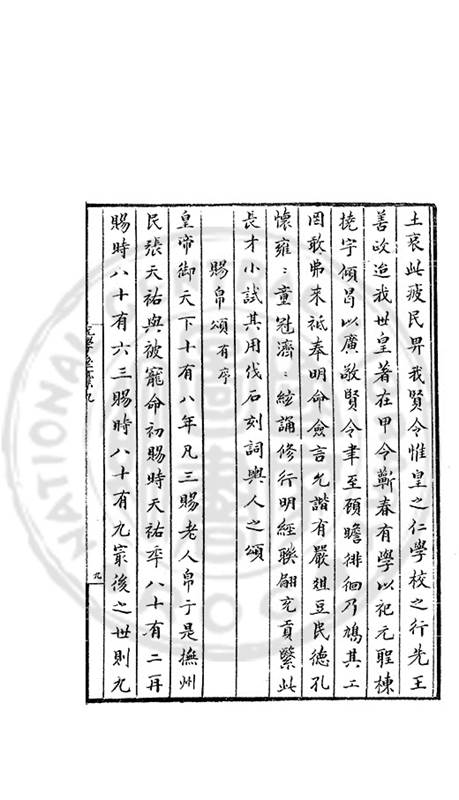 土哀此疲民畀我賢令惟皇之仁學校之行先王
善政迨我世皇著在甲令蘄春有學以祀元聖棟
撓字傾曷以廣敬賢令聿至顧瞻徘徊乃鳩其工
罔敢弗來祗奉明命僉言允諧有嚴俎豆民德孔
懷雍〻童冠濟〻絃誦修行明經聯翩充貢繄此
長才小試其用伐石刻詞輿人之頌
賜帛頌有序
皇帝御天下十有八年凡三賜老人帛于是撫州
民張天祐與被寵命初賜時天祐年八十有二再
賜時八十有六三賜時八十有九㝡後之世則九
九